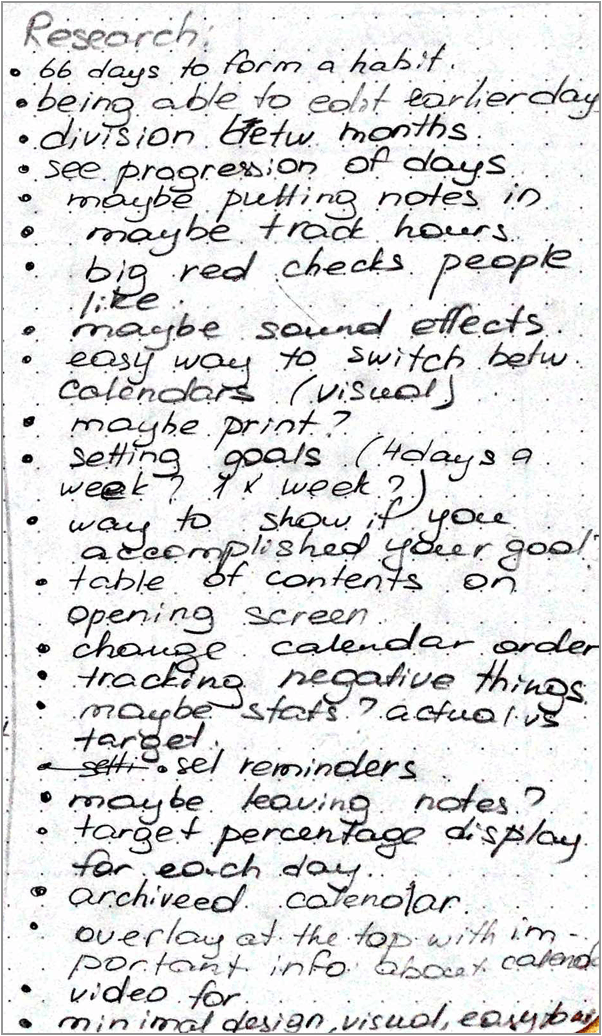 Research:
• 66 days to form a habit.
• being able to edit earlier day
• division betw months.
• see progression of days
• maybe putting notes in
• maybe track hours
• big red checks people
like.
• maybe sound effects.
• easy way to switch betw.
calendars (visual)
• maybe print?
• setting goals (4 days a
week? 1x week?)
• way to show if you
accomplished your goal
• table of contents on
opening screen
• change calendar order
• tracking negative things
• maybe stats? actual vs
target.
• setti • set reminders
• maybe leaving notes?
• target percentage display
for each day.
• archiveed calendar
• overlay at the top with im-
portant info about calend
• video for
• minimal design, visual, easy